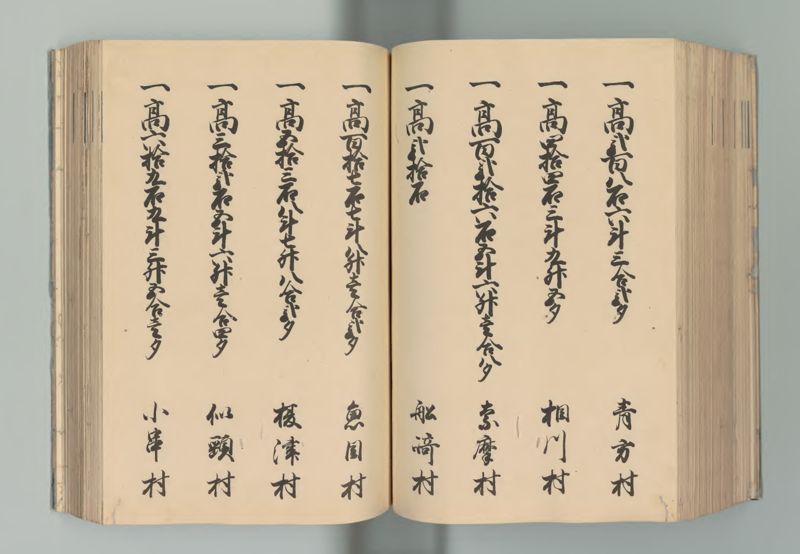 一高弐百八石六斗三合弐夕 青方村
一高四拾四石三斗九升五夕 相川村
一高百弐拾六石五斗六升壱合八夕 奈摩村
一高弐拾石 船﨑村
一高百拾七石七斗八升壱合弐夕 魚目村
一高五拾三石八斗七升八合弐夕 榎津村
一高三拾弐石五斗六升壱合四夕 似頸村
一高六拾五石九斗三升五合壱夕 小串村